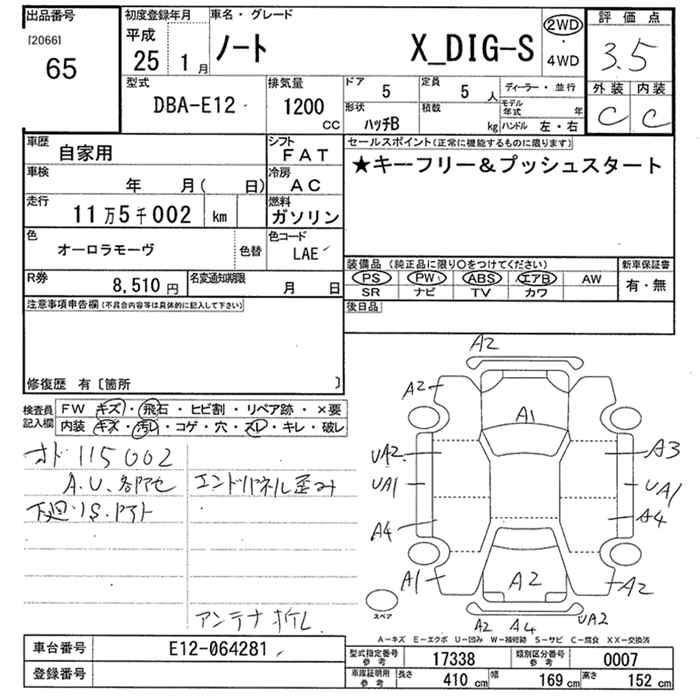 出品番号
[2066]
65
初度登録年月
平成
25 1月
車名・グレード
ノート X_DIG-S
2WD
・
4WD
評価点
3.5
外装 内装
C C
型式
DBA-E12
排気量
1200
CC
ドア 5
定員 5 人
ディーラー・並行
形状
ハッチB
積載
kg
モデル年式 年
ハンドル 左・右
車歴
自家用
シフト
FAT
車検
年 月( 日)
冷房
AC
走行
11万5千002 km
燃料
ガソリン
色
オーロラモーヴ
色替
色コード
LAE
R券
8,510円
名変通知期限
月 日
セールスポイント(正常に機能するものに限ります)
★キーフリー&プッシュスタート
装備品(純正品に限り○をつけてください)
PS PW ABS エアB AW
SR ナビ TV カワ
新車保証書
有・無
後日品
注意事項申告欄(不具合内容等は具体的に記入して下さい)
修復歴 有〔箇所 〕
検査員
記入欄
FW キズ・飛石・ヒビ割・リペア跡・×要
内装 キズ・汚れ・コゲ・穴・スレ・キレ・破レ
オド115002
A.U.各部色 エンドパネル歪み
下廻りS.アト
アンテナ折レ
A2
A2
A1
UA2
A3
UA1
UA1
A4
A4
A1
A2
A2
A2 A4 UA2
スペア
A－キズ E－エクボ U－凹み W－補修跡 S－サビ C－腐食 XX－交換済
車台番号
E12-064281
登録番号
型式指定番号
参考
17338
類別区分番号
参考
0007
車庫証明用
参考
長さ 410 cm
幅 169 cm
高さ 152 cm